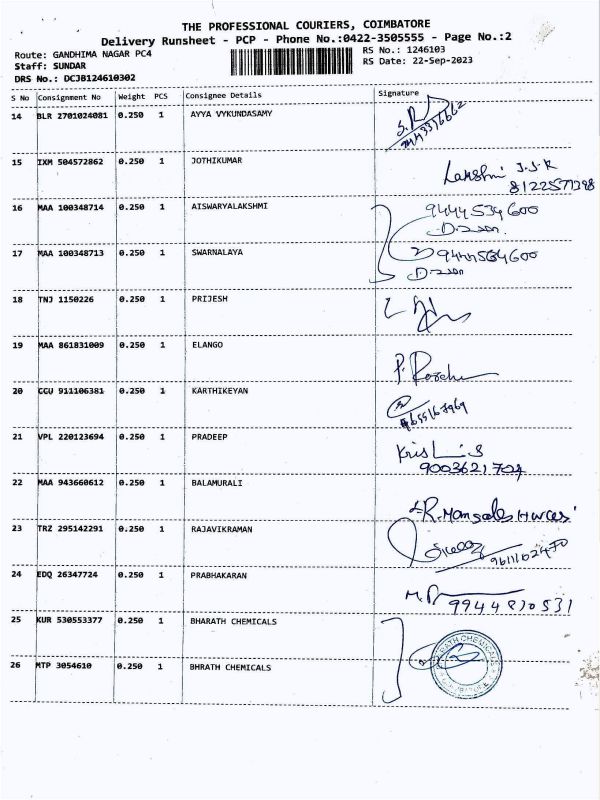 THE PROFESSIONAL COURIERS, COIMBATORE
Delivery Runsheet - PCP - Phone No.:0422-3505555 - Page No.:2
Route: GANDHIMA NAGAR PC4
RS No.: 1246103
Staff: SUNDAR
RS Date: 22-Sep-2023
DRS No.: DCJB124610302
S No Consignment No Weight PCS Consignee Details Signature
14 BLR 2701024081 0.250 1 AYYA VYKUNDASAMY
15 IXM 504572862 0.250 1 JOTHIKUMAR
Lakshmi J.J.R
8122571398
16 MAA 100348714 0.250 1 AISWARYALAKSHMI 9444534600
17 MAA 100348713 0.250 1 SWARNALAYA 9444534600
18 TNJ 1150226 0.250 1 PRIJESH
19 MAA 861831009 0.250 1 ELANGO
20 CCU 911106381 0.250 1 KARTHIKEYAN
21 VPL 220123694 0.250 1 PRADEEP
9003621704
22 MAA 943660612 0.250 1 BALAMURALI
23 TRZ 295142291 0.250 1 RAJAVIKRAMAN
24 EDQ 26347724 0.250 1 PRABHAKARAN
9944820531
25 KUR 530553377 0.250 1 BHARATH CHEMICALS
26 MTP 3054610 0.250 1 BHRATH CHEMICALS